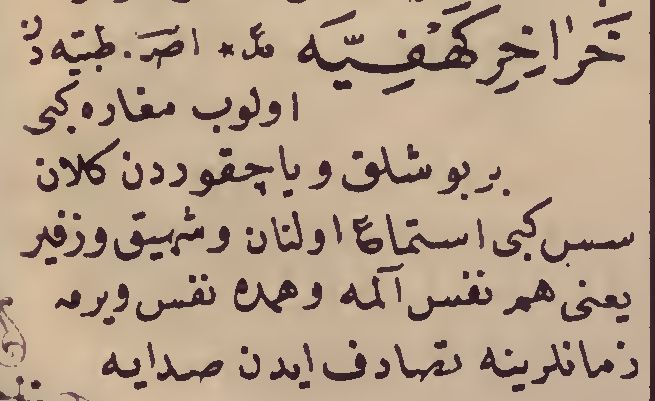 خَرَاخِرِ كَهْفِيَّه * اصط. طبيه دن
اولوب مغاره كبى
بر بوشلق ويا چقوردن كلان
سس كبى استماع اولنان وشهيق وزفير
يعنى هم نفس آلمه وهمده نفس ويرمه
زمانلرينه تصادف ايدن صدايه